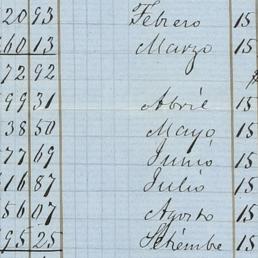 20 93 Febrero 15
60 13 Marzo 15
72 92
99 31 Abril 15
38 50 Mayo 15
77 69 Junió 15
116 87 Julio 15
56 07 Agosto 15
95 25 Setiembre 15